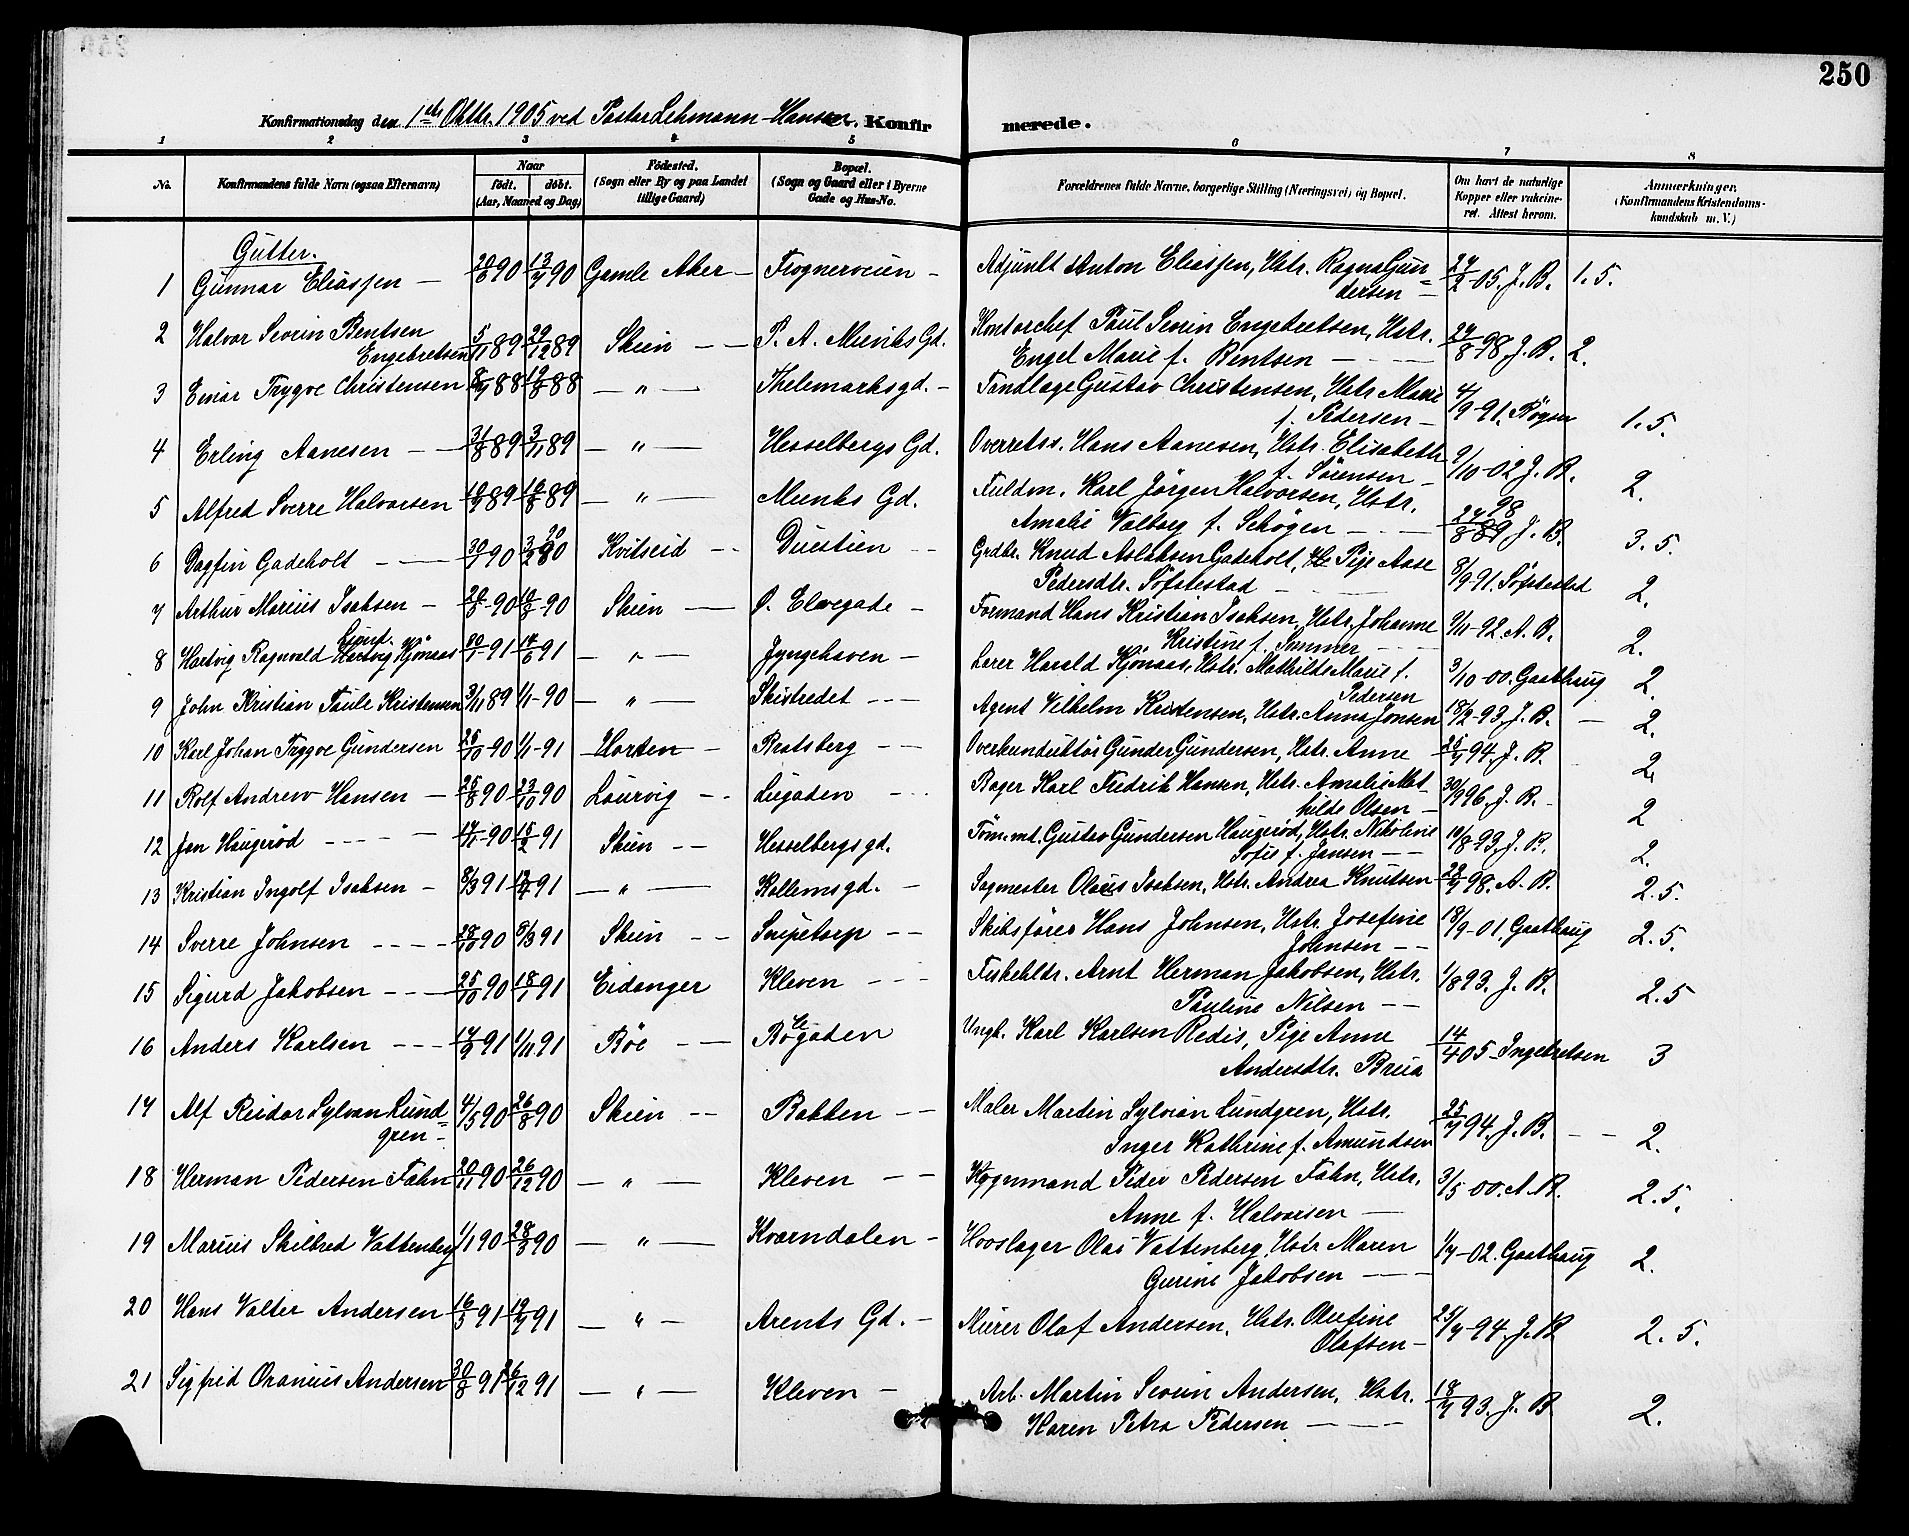 250
Konfirmationsdag den 1ste Oktbr. 1905 ved Pastor Lehmann-Hansen. Konfirmerede.
1 2 3 4 5 6 7 8
No. Konfirmandens fulde Navn (ogsaa Efternavn) Naar født. døbt. (Aar, Maaned og Dag) Fødested. (Sogn eller By og paa Landet tillige Gaard) Bopæl. (Sogn og Gaard eller i Byerne Gade og Hus-No. Forældrenes fulde Navne, borgerlige Stilling (Næringsvei) og Bopæl. Om havt de naturlige Kopper eller vakcineret. Attest herom. Anmærkninger. (Konfirmandens Kristendomskundskab m. V.)
Gutter.
1 Gunnar Eliassen — 20/6 90 13/7 90 Gamle Aker — Frognerveien — Adjunkt Anton Eliassen, Hstr. Ragna Gundersen — 24/2-05. J. B. 1.5.
2 Halvor Severin Bentsen Engebretsen 5/11 89 29/12 89 Skien — P. A. Munks Gd. Kontorchef Paul Severin Engebretsen, Hstr. Engel Marie f. Bentsen — 24/8 98 J. B. 2.
3 Einar Trygve Christensen 8/7 88 19/8 88 — " — Thelemarksgd. — Tandlæge Gustav Christensen, Hstr Marie f. Pedersen — 4/9-91. 1.5.
4 Erling Aanesen — 31/8 89 3/11 89 — " — Hesselbergs Gd. Overretss. Hans Aanesen, Hstr. Elisabeth f. Sørensen — 9/10-02 J. B. 2.
5 Alfred Sverre Halvorsen 89 89 — " — Munks Gd. Fuldm. Karl Jørgen Halvorsen, Hstr. Amalie Valborg f. Schøgen — 24/8 98 J. B. 3.5.
6 Dagfin Gadeholt — 30/7 90 3/2 90 Kvitseid — Duestien — Grdbr. Knud Aslaksen Gadeholt, Pige Aase Pedersdtr. Söftestad — 8/9 91. Söftestad 2.
7 Arthur Marius Isaksen — 90 90 Skien — Ø. Elvegade — Formand Hans Kristian Isaksen, Hstr. Johanne Kristine f. — 9/11-92. A. B. 2.
8 Hartvig Ragnvald Lund. Kjønaas 91 14/6 91 — " — Lyngehaven — Lærer Harald Kjønaas, Hstr. Mathilde Marie f. Pedersen 3/10-00. Gaathaug 2.
9 John Kristian Paule Kristensen 3/11 89 1/1-90 — " — Skistredet — Agent Vilhelm Kristensen, Hstr. Anna Jonsen 18/2-93, J. B. — 2.
10 Karl Johan Trygve Gundersen 26/10-90 1/1-91 Horten — Bratsberg — Overkunduktör Gunder Gundersen, Hstr. Anne 25/7 94, J. B. 2.
11 Rolf Andrew Hansen — 25/8 90 23/10 90 Laurvig — Liegaden — Bager Karl Fredrik Hansen, Hstr. Amalie Mathilde Olsen — 30/9 96, J. B. — 2
12 Jan Haugerød — 17/11-90 15/2 91 Skien — Hesselbergsgd. Tömmt. Gustav Gundersen Haugerød, Hstr. Nikoline Sofie f. Jansen — 10/8 93, J. B. 2.
13 Kristian Ingolf Isaksen — 8/3 91 91 — " — Kollemsgd. — Sagmester Olaus Isaksen, Hstr. Andrea Knutsen 98. A. B. 2.5.
14 Sverre Johnsen — 28/10 90 8/3 91 Skien — Snipetorp — Skibsfører Hans Johnsen, Hstr. Josefine Johnsen — 18/9-01. Gaathaug 2.5.
15 Sigurd Jakobsen — 25/10 90 18/1 91 Eidanger Kleven — Fiskehldr. Arnt Herman Jakobsen, Hstr. Pauline Nilsen — 1/8 93. J. B. 2.5
16 Anders Karlsen — 17/9 91 1/11 91 Bøe — Bøgaden Ungk. Karl Karlsen Redis, Pige Anne Andersdtr. Brua 14/4 05-Ingebretsen 3
17 Alf Reidar Sylvan Lundgren — 4/5 90 26/8 90 Skien — Bakken — Maler Martin Sylvian Lundgren, Hstr. Inger Kathrine f. Amundsen 25/7 94, J. B. — 2.
18 Herman Pedersen Fahn 20/11 90 26/12 90 — " — Kleven — Kognmand Peder Pedersen Fahn, Hstr. Anne f. Halvorsen — 3/5-00. A. B. 2.5.
19 Marius Skilbred Vattenberg 1/1 90 28/3 90 — " — Kværndalen — Hovslager Olai Vattenberg, Hstr Maren Gurine Jakobsen — 1/7-02. Gaathaug 2.
20 Hans Valter Andersen 16/5 91 19/7 91 — " — Arents Gd. — Murer Olaf Andersen, Hstr. Olefine Olafsen — 25/7-94. J. B 2.5.
21 Sigfrid Oranius Andersen 30/8 91 26/12 91 — " — Kleven — Arb. Martin Severin Andersen, Hstr. Karen Petra Pedersen — 18/7 93. J. B 2.